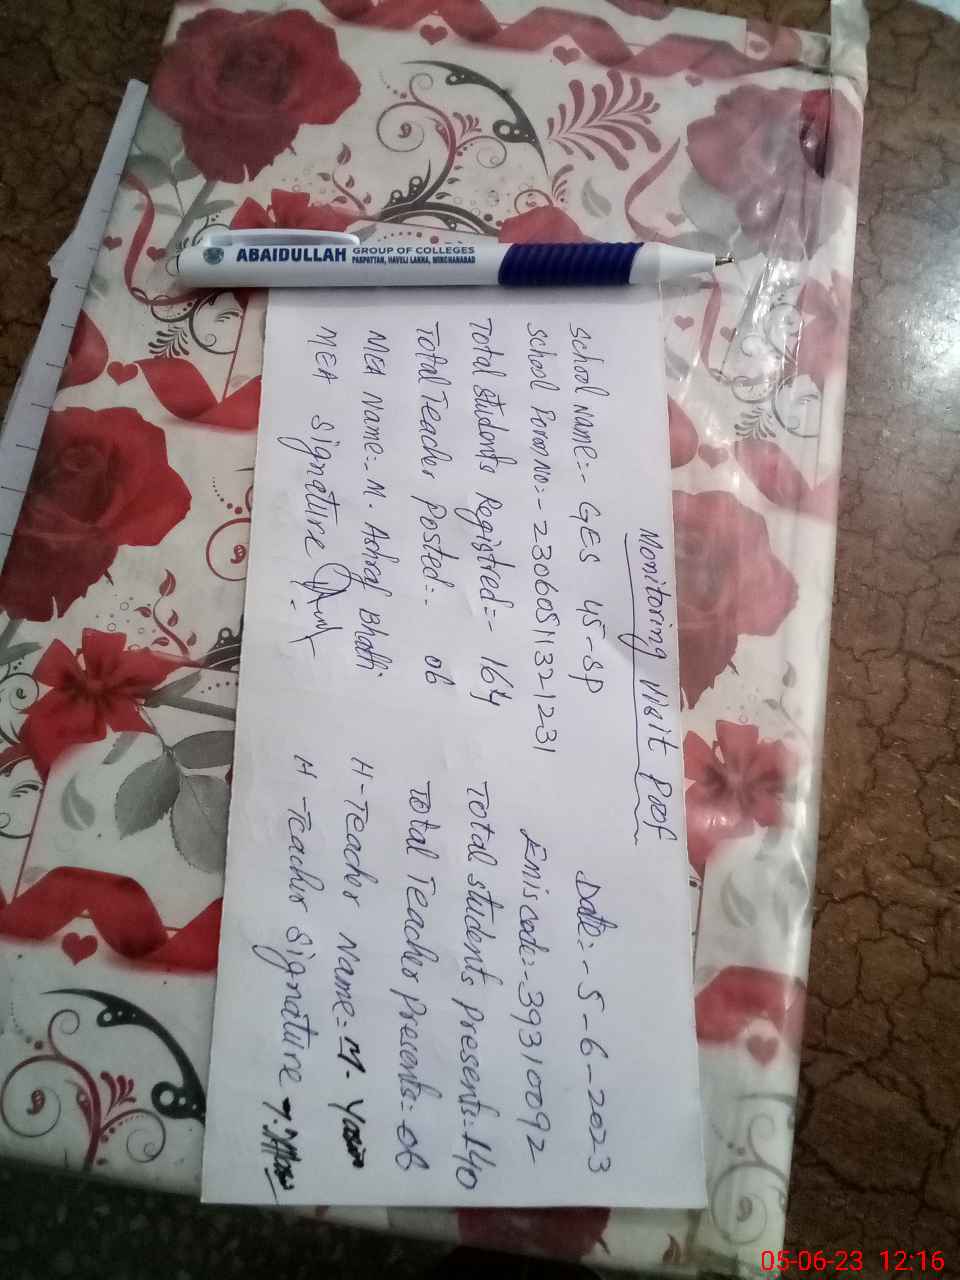 ABAIDULLAH GROUP OF COLLEGES
PAKPATTAN, HAVELI LAKHA, MINCHANABAD
Monitoring Visit Poof
School Name:- GES 45-SP Date:- 5-6-2023
School Form No:- 23060511321231 Emis code:- 39310092
Total Students Registred:- 164 Total Students Presents:- 140
Total Teacher Posted:- 06 Total Teacher Presents:- 06
MEA Name:- M. Ashraf Bhatti H-Teacher Name:- M. Yasin
MEA Signature H-Teacher Signature
05-06-23 12:16